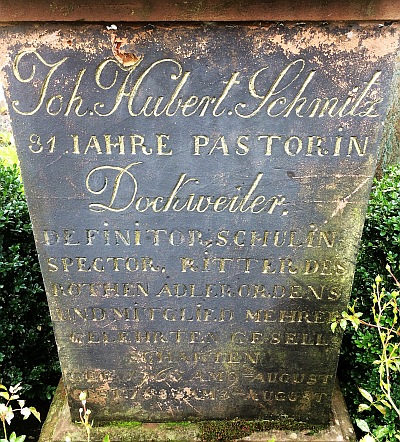 Joh. Hubert. Schmitz
81. JAHRE PASTOR IN
Dockweiler.
DEFINITOR, SCHULIN
SPECTOR, RITTER DES
ROTHEN ADLERORDENS
UND MITGLIED MEHRER
GELEHRTEN GESELL
SCHAFTEN
AUGUST
AUGUST